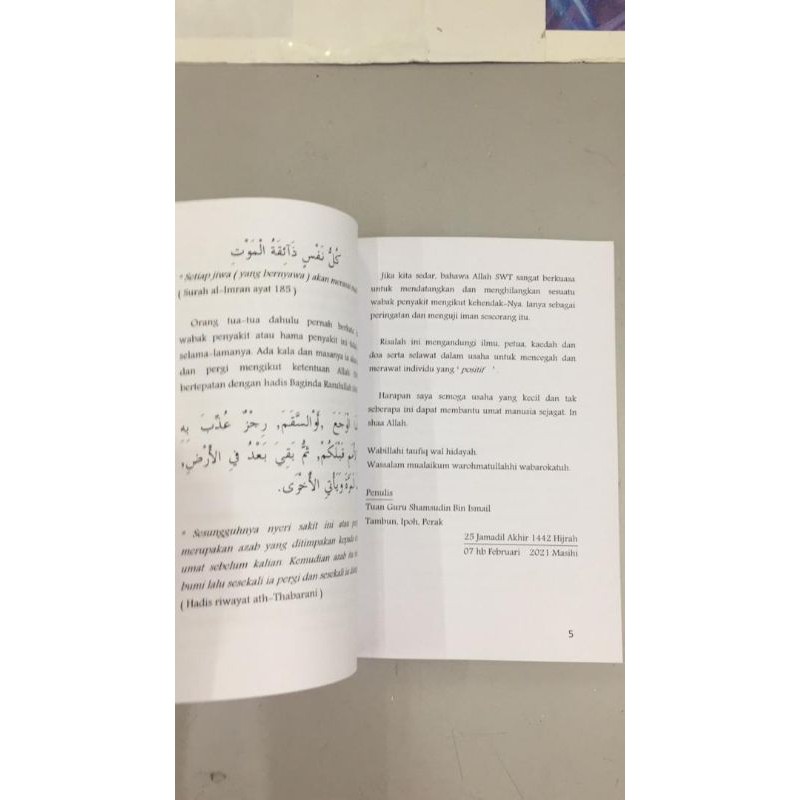 كُلُّ نَفْسٍ ذَآئِقَةُ الْمَوْتِ
" Setiap jiwa ( yang bernyawa ) akan
( Surah al-Imran ayat 185 )
Orang tua-tua dahulu pernah
wabak penyakit atau hama penyakit ini
selama-lamanya. Ada kala dan masanya ia
dan pergi mengikut ketentuan Allah
bertepatan dengan hadis Baginda Rasulullah
الْوَجَعَ ,أَوْالسَّقَمَ, رِجْزٌ عُذِّبَ بِهِ
قَبْلَكُمْ, ثُمَّ بَقِيَ بَعْدُ فِي الأَرْضِ,
وَيَأْتِي الأُخْرَى.
" Sesungguhnya nyeri sakit ini atau
merupakan azab yang ditimpakan
umat sebelum kalian. Kemudian azab itu
bumi lalu sesekali ia pergi dan sesekali ia
( Hadis riwayat ath-Thabarani )
Jika kita sedar, bahawa Allah SWT sangat berkuasa
untuk mendatangkan dan menghilangkan sesuatu
wabak penyakit mengikut kehendak-Nya. Ianya sebagai
peringatan dan menguji iman seseorang itu.
Risalah ini mengandungi ilmu, petua, kaedah dan
doa serta selawat dalam usaha untuk mencegah dan
merawat individu yang ' positif ' .
Harapan saya semoga usaha yang kecil dan tak
seberapa ini dapat membantu umat manusia sejagat. In
shaa Allah.
Wabillahi taufiq wal hidayah.
Wassalam mualaikum warohmatullahhi wabarokatuh.
Penulis
Tuan Guru Shamsudin Bin Ismail
Tambun, Ipoh, Perak
25 Jamadil Akhir 1442 Hijrah
07 hb Februari 2021 Masihi
5